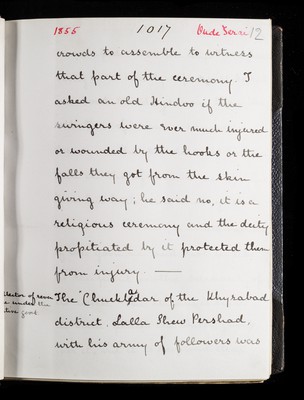 1855 1017 Oude Terri 12
crowds to assemble to witness
that part of the ceremony. I
asked an old Hindoo if the
swingers were ever much injured
or wounded by the hooks or the
falls they got from the skin
giving way; he said no, it is a
religious ceremony and the deity
propitiated by it protected them
from injury. —
The "Chuckledar of the Khyrabad
district, Lalla Shew Pershad,
with his army of followers was
llector of reven
e under the
tive govt